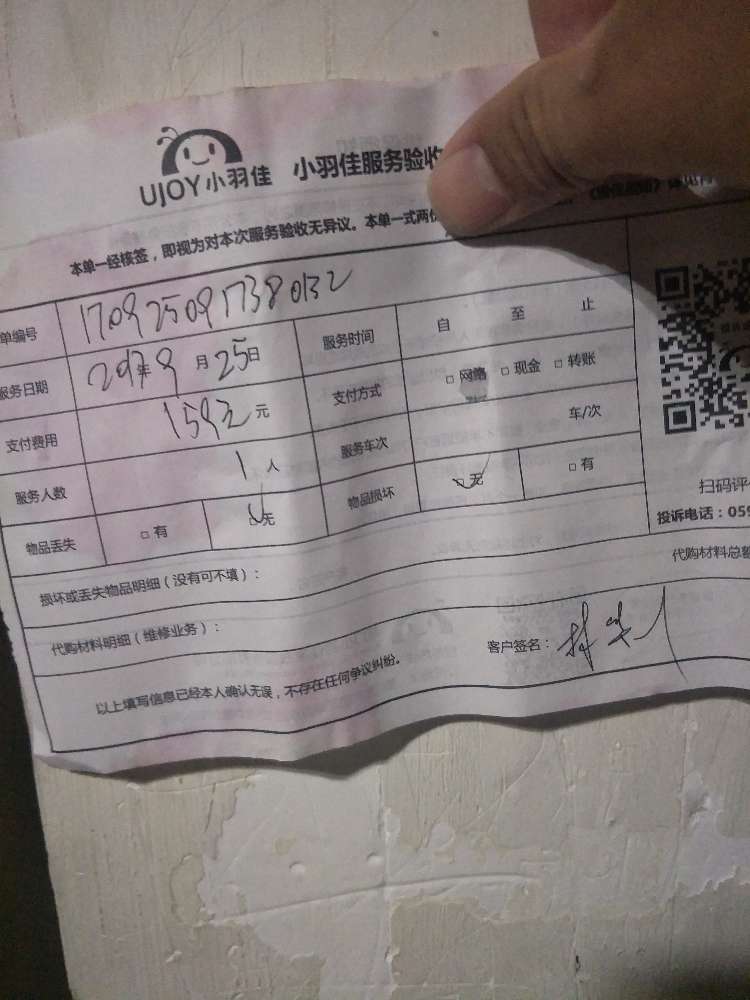 UJOY小羽佳 小羽佳服务验收
本单一经核签，即视为对本次服务验收无异议。本单一式两份
单编号 1709250917380132
服务日期 2017年9月25日 服务时间 自 至 止
支付费用 159元 元 支付方式 □ 网络 □ 现金 □ 转账
服务人数 1人 服务车次 车/次
物品丢失 □ 有 □ 无 物品损坏 □ 无 □ 有
扫码评
投诉电话：059
损坏或丢失物品明细（没有可不填）：
代购材料明细（维修业务）： 代购材料总额
以上填写信息已经本人确认无误，不存在任何争议纠纷。 客户签名：